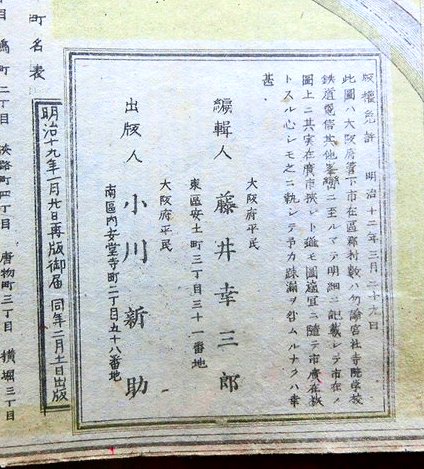 版權免許 明治十二年三月二十九日
此圖ハ大阪府管下市在區郡村數ハ勿論官社寺院學校
鉄道電信其他峯巒ニ至ルマテ明細ニ記載シテ市在ノ
圖上ニ其実在廣市狹シト雖モ圖遠冝ニ隨テ市廣在狹
トスル心レモ之ニ執シテ予カ疎漏ヲ咎ムルナクハ幸
甚
大阪府平民
編輯人 藤井幸三郎
東區安土町三丁目三十一番地
大阪府平民
出版人 小川新助
南區内安堂寺町二丁目五十八番地
明治十九年一月廿日再版御届 同年二月十一日出版
町名表
町二丁目 淡路町四丁目 唐物町三丁目 横堀三丁目